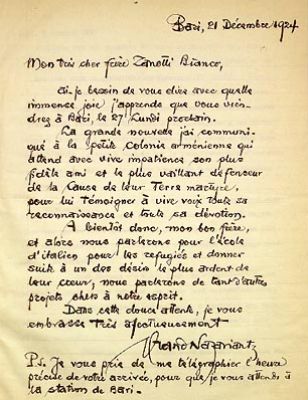 Bari, 21 Décembre 1924
Mon très cher frère Zanotti Bianco,
ai-je besoin de vous dire avec quelle
immense joie j'apprends que vous vien-
drez à Bari, le 27 Lundi prochain.
La grande nouvelle j'ai communi-
qué à la petite Colonie arménienne qui
attend avec vive impatience son plus
fidèle ami et le plus vaillant défenseur
de la Cause de leur Terre martyre,
pour lui témoigner à vive voix toute sa
reconnaissance et toute sa dévotion.
À bientôt donc, mon bon frère,
et alors nous parlerons pour l'école
d'italien pour les refugiés et donner
suite à un des désirs le plus ardent de
leur cœur, nous parlerons de tant d'autres
projets chers à notre esprit.
Dans cette douce attente, je vous
embrasse très affectueusement
Hrand Nazariantz
P.S. Je vous prie de me télégraphier l'heure
précise de votre arrivée, pour que je vous attends à
la station de Bari.